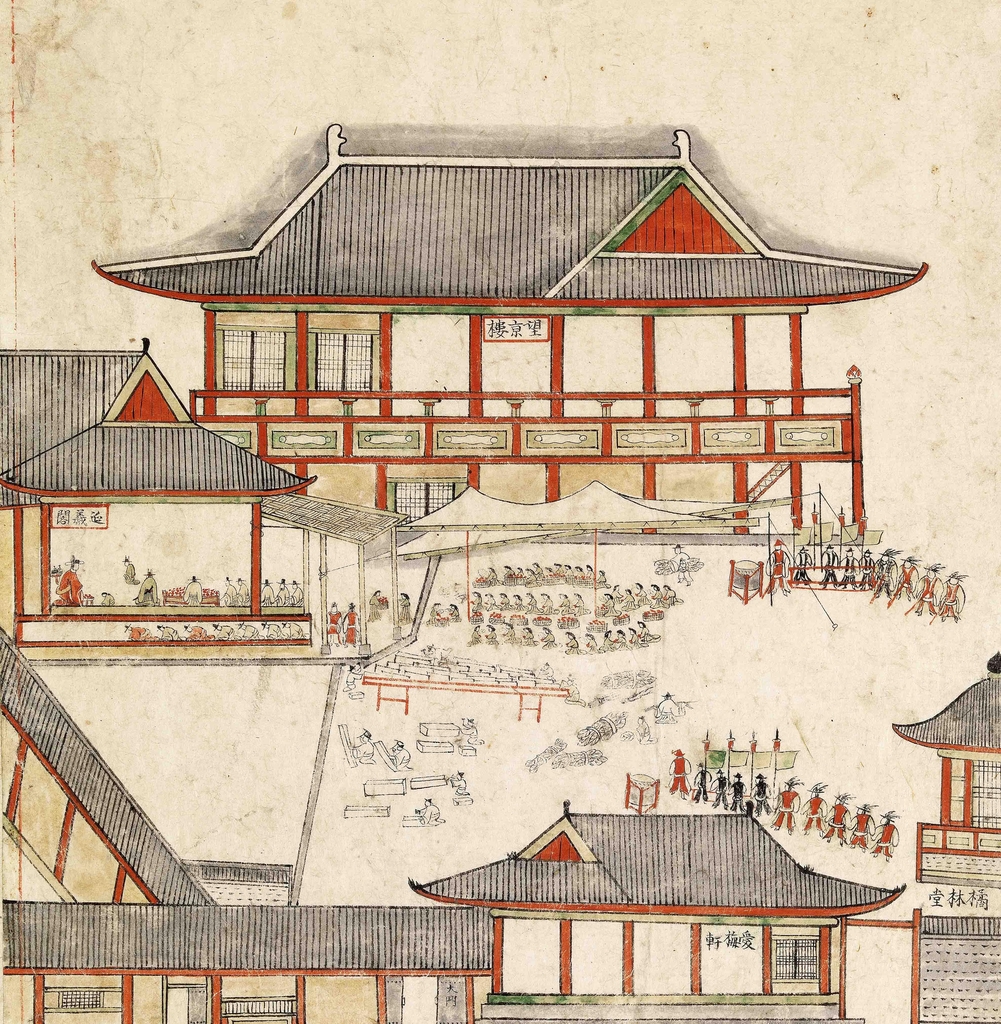 望京樓
延羲閣
橘林堂
愛梅軒
大門